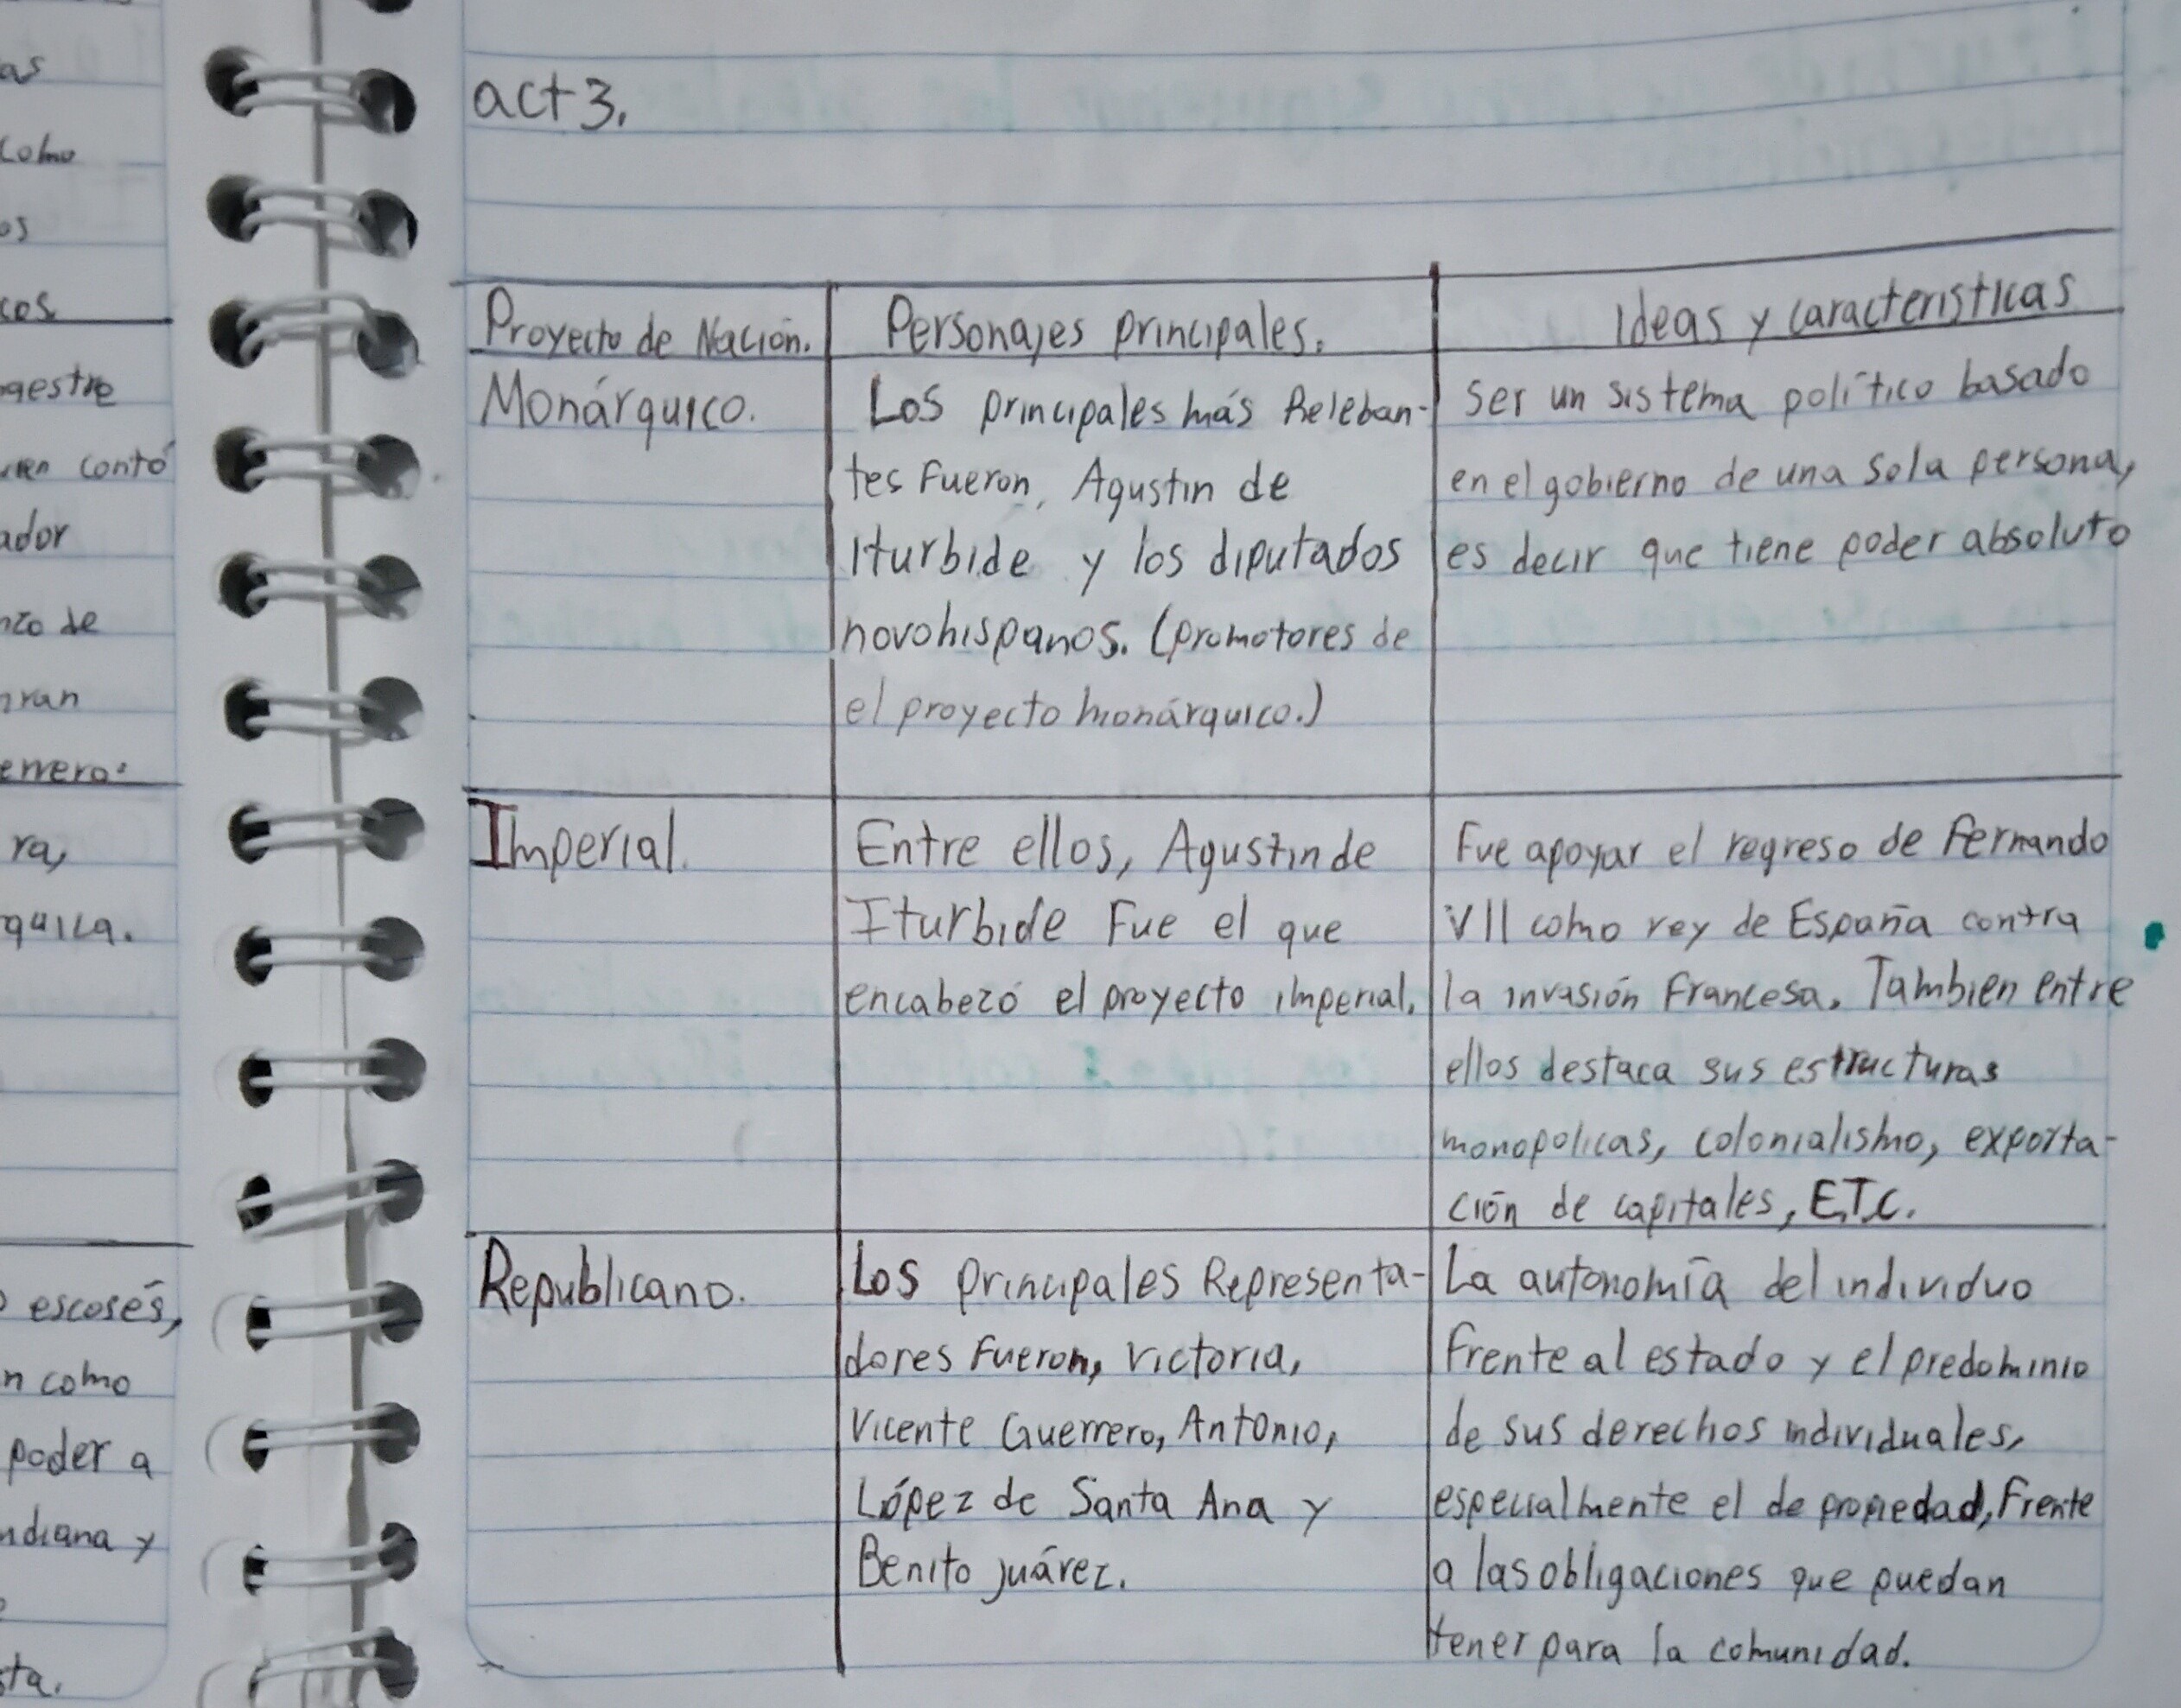 as
como
os
cos
gestre
ren contó
ador
nto de
nran
errero.
ra,
quila.
o escosés,
n como
poder a
ndiana y
sta.
act 3.
Proyecto de Nación.
Personajes principales.
Ideas y caracteristicas
Monárquico.
Los principales más Releban-
tes Fueron, Agustin de
Iturbide y los diputados
novohispanos. (promotores de
el proyecto monárquico.)
Ser un sistema político basado
en el gobierno de una sola persona,
es decir que tiene poder absoluto
Imperial.
Entre ellos, Agustin de
Iturbide Fue el que
encabezó el proyecto imperial.
Fue apoyar el regreso de Fernando
VII como rey de España contra
la invasión Francesa. Tambien entre
ellos destaca sus estructuras
monopolicas, colonialismo, exporta-
ción de capitales, E.T.C.
Republicano.
Los principales Representa-
dores Fueron, Victoria,
Vicente Guerrero, Antonio,
López de Santa Ana y
Benito juárez.
La autonomía del individuo
Frente al estado y el predominio
de sus derechos individuales,
especialmente el de propiedad, Frente
a las obligaciones que puedan
tener para la comunidad.